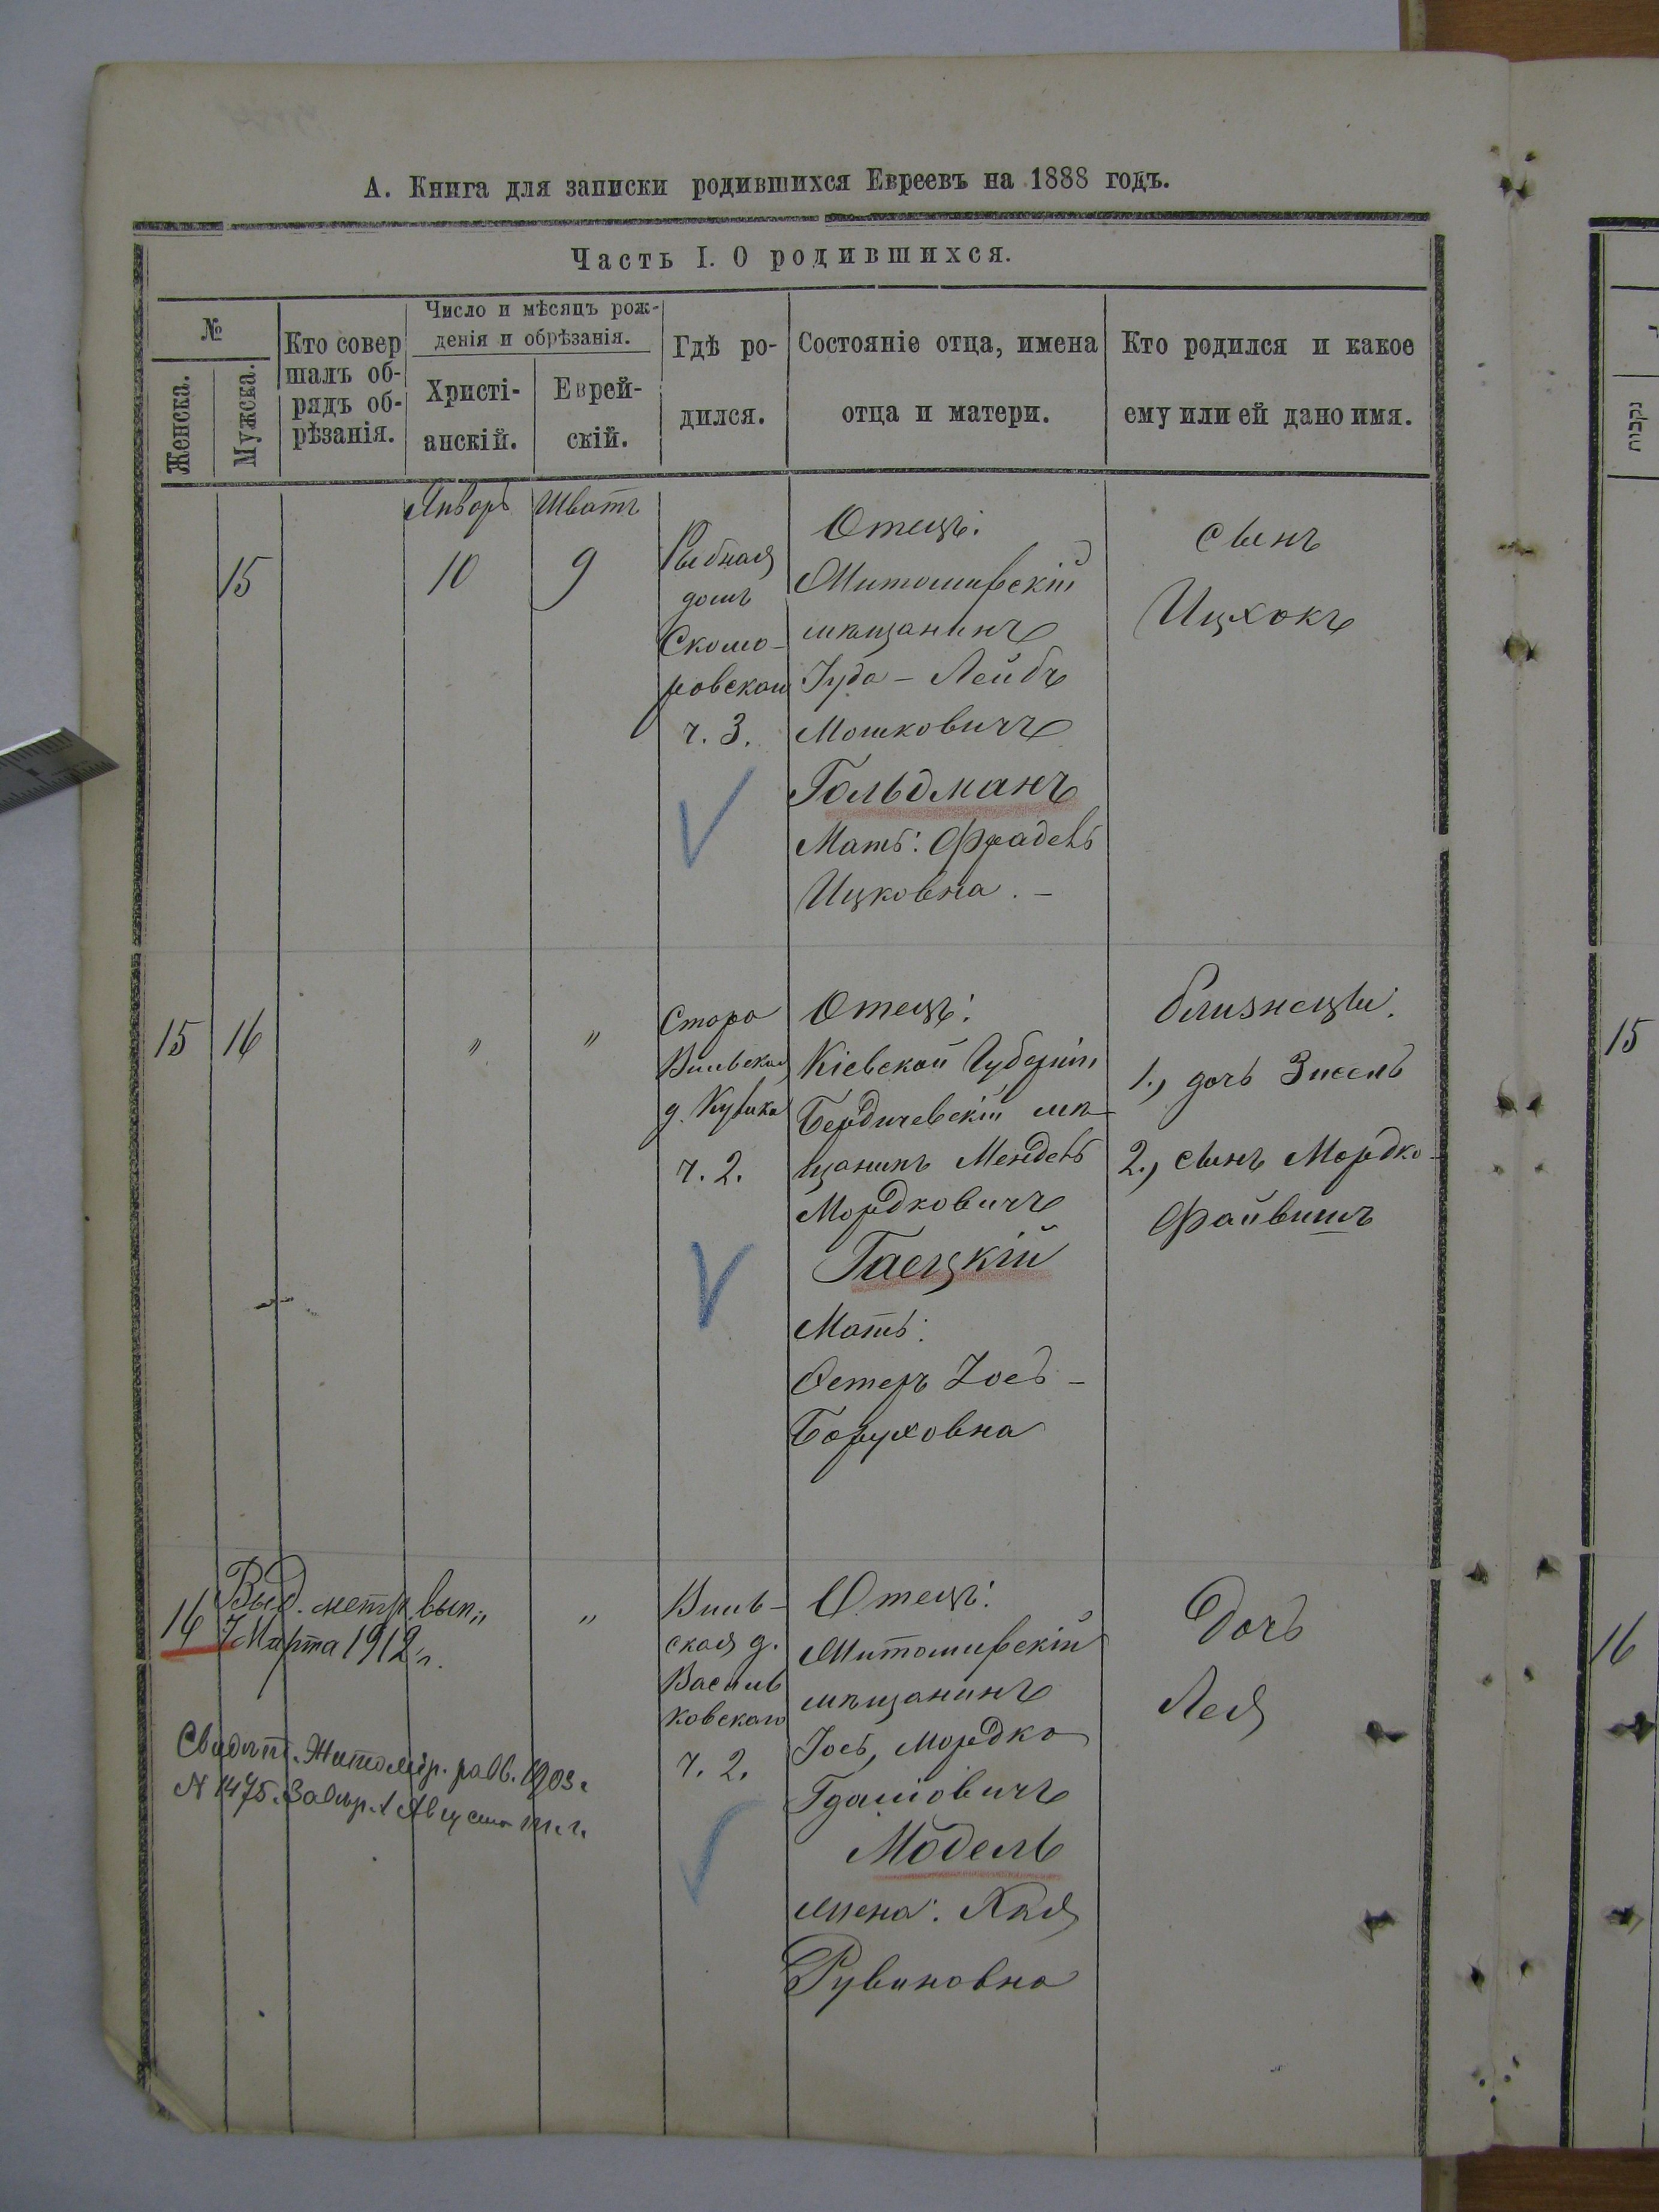 А. Книга для записки родившихся Евреевъ на 1888 годъ.
Часть I. О родившихся.
№
Женска.
Мужска.
Кто совер
шалъ об-
рядъ об-
рѣзанія.
Число и мѣсяцъ рож-
денія и обрѣзанія.
Христі-
анскій.
Еврей-
скій.
Гдѣ ро-
дился.
Состояніе отца, имена
отца и матери.
Кто родился и какое
ему или ей дано имя.
Январь
Шватъ
15
10
9
Рыбная
домъ
Скомо-
ровской
ч. 3.
Отецъ:
Житомирскій
мѣщанинъ
Іуда - Лейбъ
Мошковичъ
Гольдманъ
Мать: Фрадель
Ицковна. -
сынъ
Ицхокъ
15
16
"
"
Старо
Вильская
д. Кулика
ч. 2.
Отецъ:
Кіевской Губерніи
Бердичевскій мѣ-
щанинъ Мендель
Мордковичъ
Гаецкій
Мать:
Эстеръ Іось-
Боруховна
близнецы:
1., дочь Зисель
2., сынъ Мордко-
Файвишъ
16
Выд. метр. вып.
7 Марта 1912 г.
"
"
Свидѣт. Житомир. равв. 1903 г.
№ 1475. 1 Августа т. г.
Виль-
ская д.
Василь
ковскаго
ч. 2.
Отецъ:
Житомирскій
мѣщанинъ
Іось, Мордко
Модель
жена: Хая
Рувиновна
Дочь
Лея
נקבות
15
16